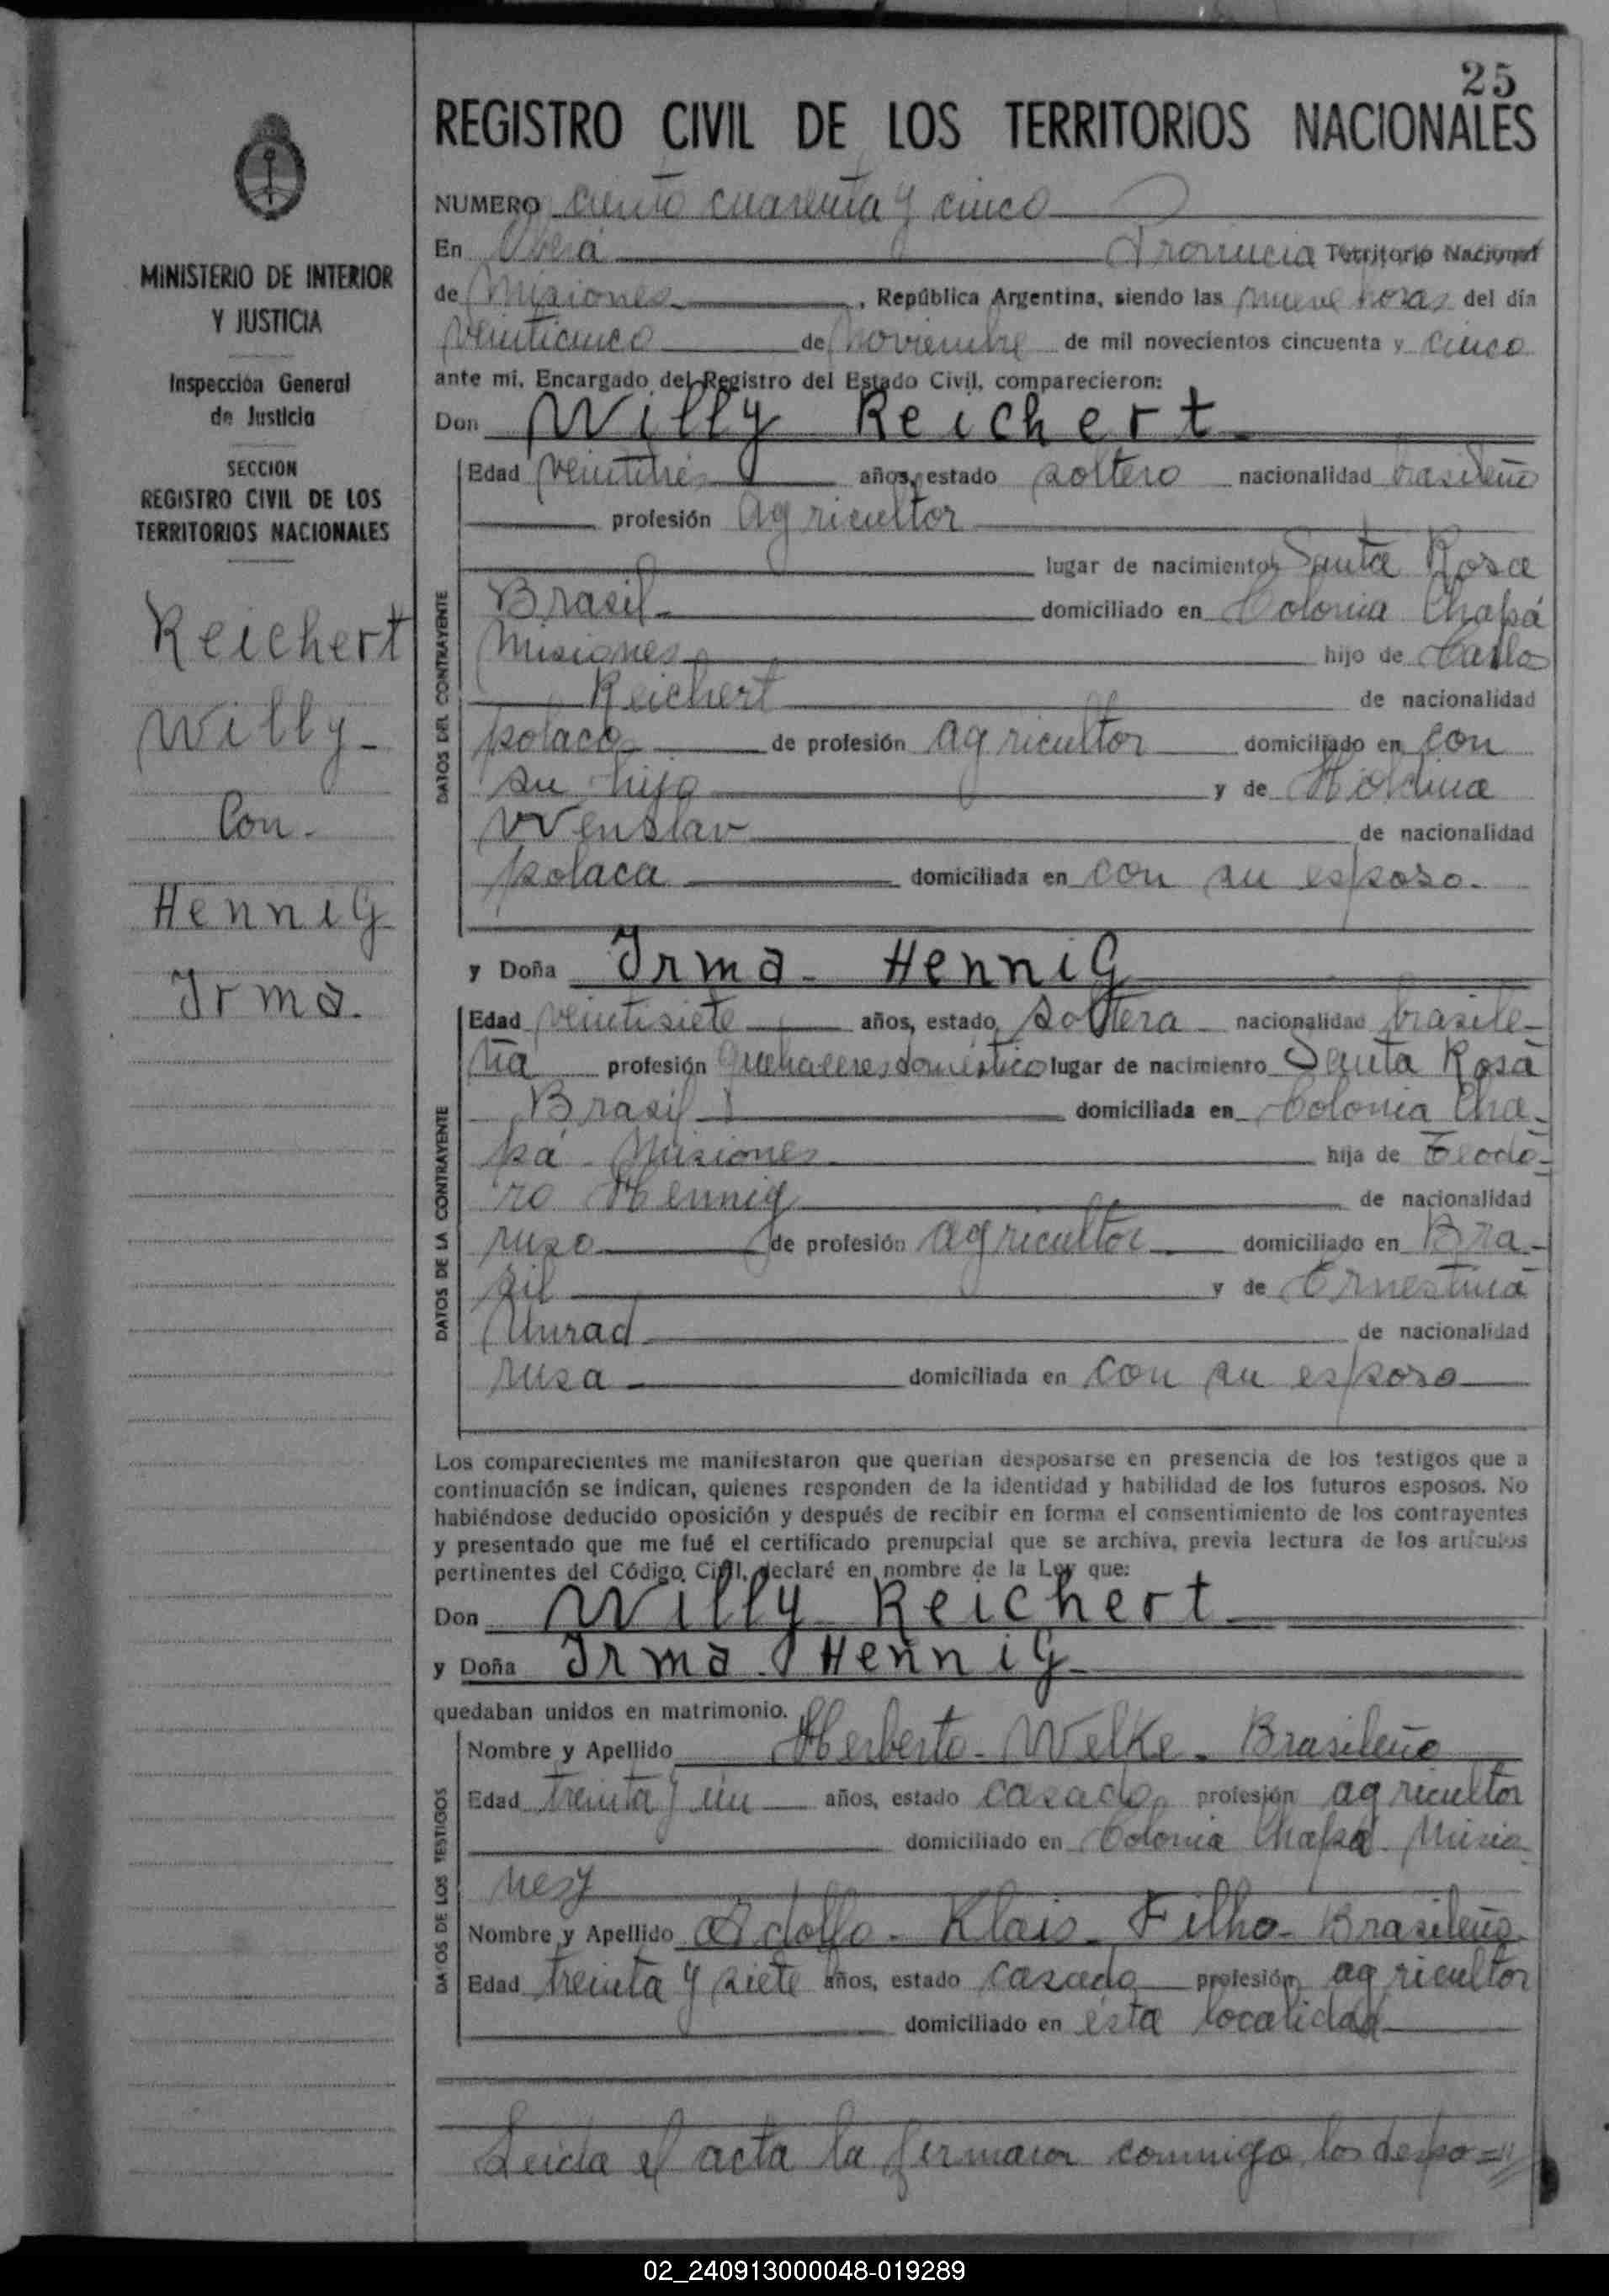 25
REGISTRO CIVIL DE LOS TERRITORIOS NACIONALES
MINISTERIO DE INTERIOR
Y JUSTICIA
Inspección General
de Justicia
SECCION
REGISTRO CIVIL DE LOS
TERRITORIOS NACIONALES
Reichert
Willy-
Con-
Hennig
Irma.
NUMERO ciento cuarenta y cinco
En Oberá Provincia Territorio Nacional
de Misiones, República Argentina, siendo las nueve horas del día
veinticinco de noviembre de mil novecientos cincuenta y cinco
ante mi, Encargado del Registro del Estado Civil, comparecieron:
Don Willy Reichert
DATOS DEL CONTRAYENTE
Edad veintitrés años, estado soltero nacionalidad brasileño
profesión agricultor
lugar de nacimiento Santa Rosa
Brasil domiciliado en Colonia Chapá
Misiones hijo de Carlos
Reichert de nacionalidad
polaco de profesión agricultor domiciliado en con
su hijo y de
Wenslav de nacionalidad
polaca domiciliada en con su esposo.
y Doña Irma Hennig
DATOS DE LA CONTRAYENTE
Edad veintisiete años, estado soltera nacionalidad brasile-
ña profesión quehaceres doméstico lugar de nacimiento Santa Rosa
Brasil domiciliada en Colonia Cha-
pá Misiones hija de Teodo-
ro Hennig de nacionalidad
ruso de profesión agricultor domiciliado en Bra-
sil y de Ernestina
de nacionalidad
rusa domiciliada en con su esposo
Los comparecientes me manifestaron que querían desposarse en presencia de los testigos que a
continuación se indican, quienes responden de la identidad y habilidad de los futuros esposos. No
habiéndose deducido oposición y después de recibir en forma el consentimiento de los contrayentes
y presentado que me fué el certificado prenupcial que se archiva, previa lectura de los artículos
pertinentes del Código Civil, declaré en nombre de la Ley que:
Don Willy Reichert
y Doña Irma Hennig
quedaban unidos en matrimonio.
DATOS DE LOS TESTIGOS
Nombre y Apellido Herberto - Welke - Brasileño
Edad treinta y un años, estado casado profesión agricultor
domiciliado en Colonia Chapá Misio-
nes
Nombre y Apellido Adolfo - Klais - Filho - Brasileño
Edad treinta y siete años, estado casado profesión agricultor
domiciliado en ésta localidad
Leída el acta la firmaron conmigo, los despo=
02_240913000048-019289